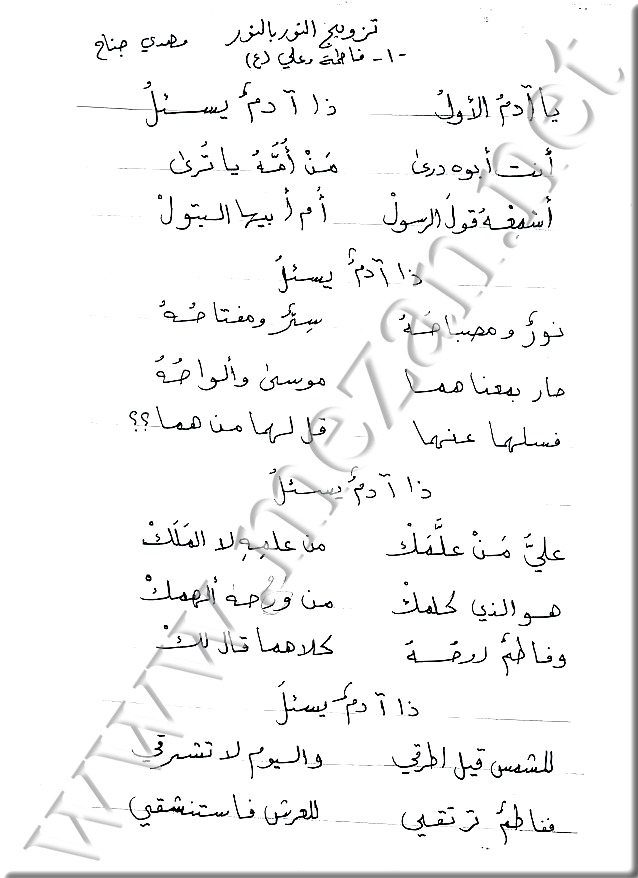 تزويج النور بالنور مهدي جناح
-١- فاطمة وعلي (ع)
يا آدمُ الأولُ ذا آدمٌ يسئلُ
أنت أبوه درىٰ مَنْ أُمُّهُ يا تُرىٰ
أسْمِعْهُ قولَ الرسولْ أُم أبيها البتولْ
ذا آدمٌ يسئلُ
نورٌ ومصباحُهُ سِرٌّ ومفتاحُهُ
حار بمعناهما موسىٰ وألواحُهُ
فسلها عنها قل لها من هما؟؟
ذا آدمٌ يسئلُ
عليٌّ مَنْ علَّمَكْ من علمِهِ لا المَلَكْ
هو الذي كلمكْ من روحهِ ألهمكْ
وفاطمٌ روحُهُ كلاهما قال لكْ
ذا آدمٌ يسئلُ
للشمس قيل اطرقي واليوم لا تشرقي
ففاطمٌ ترتقي للعرش فاستنشقي
www.mezan.net